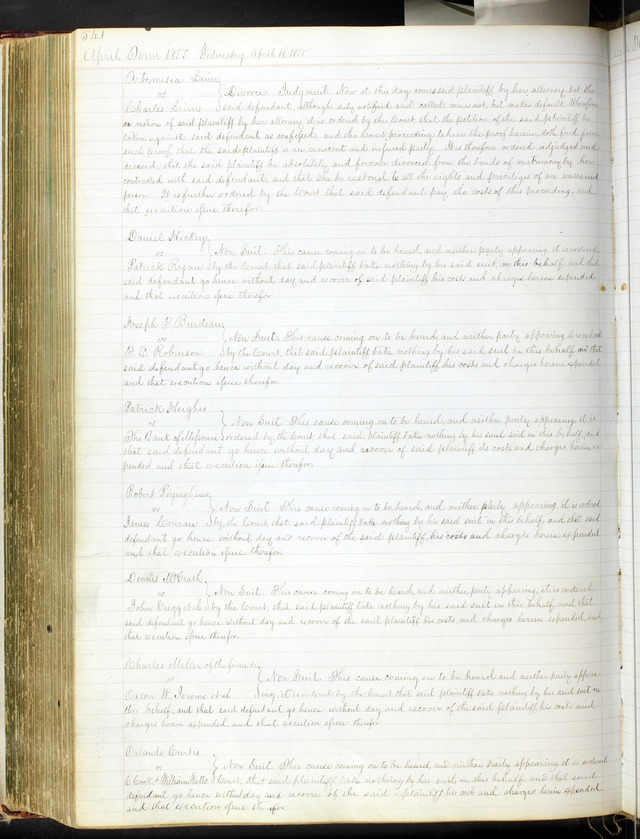 541
April Term 1855 Wednesday, April 19, 1855
Artemisia Grinn
vs } Divorce. Judgment. Now at this day comes said plaintiff by her attorney, but the
Charles Grinn said defendant, although duly notified and called comes not, but makes default. Wherefore
on motion of said plaintiff by her attorney, it is ordered by the Court that the petition of the said plaintiff be
taken against said defendant as confessed, and the Court proceeding to hear the proof herein, doth find from
such proof that the said plaintiff is an innocent and injured party. It is therefore ordered adjudged and
decreed, that the said plaintiff be absolutely and forever divorced from the bonds of matrimony by her
contracted with said defendant, and that she be restored to all the rights and privileges of an unmarried
person. It is further ordered by the Court that said defendant pay the costs of this proceeding, and
that execution issue therefor.
Daniel Hickey
vs } Non Suit. This cause coming on to be heard, and neither party appearing, it is ordered
Patrick by the Court that said plaintiff take nothing by his said suit in this behalf, and that
said defendant go hence without day and recover of said plaintiff his costs and charges herein expended
and that execution issue therefor.
Joseph Burdeau
vs } Non Suit. This cause coming on to be heard, and neither party appearing, it is ordered
Robinson by the Court, that said plaintiff take nothing by his said suit in this behalf, and that
said defendant go hence without day and recover of said plaintiff his costs and charges herein expended
and that execution issue therefor.
Patrick Hughes
vs } Non Suit. This cause coming on to be heard, and neither party appearing, it is
The Bank of Missouri ordered by the Court that said plaintiff take nothing by his said suit in this behalf, and
that said defendant go hence without day and recover of said plaintiff its costs and charges herein ex-
pended and that execution issue therefor.
Robert
vs } Non Suit. This cause coming on to be heard, and neither party appearing, it is ordered
James Conran by the Court, that said plaintiff take nothing by his said suit in this behalf, and that said
defendant go hence without day and recover of the said plaintiff, his costs and charges herein expended
and that execution issue therefor.
Dennis McGrath
vs } Non Suit. This cause coming on to be heard, and neither party appearing, it is ordered
John et al by the Court that said plaintiff take nothing by his said suit in this behalf, and that
said defendant go hence without day and recover of the said plaintiff his costs and charges herein expended and
that execution issue therefor.
Charles Miller of the firm &c
vs } Non Suit. This cause coming on to be heard and neither party appear-
Orson W. Jerome et al ing, it is ordered by the Court that said plaintiff take nothing by his said suit in
this behalf, and that said defendant go hence without day and recover of the said plaintiff, his costs and
charges herein expended, and that execution issue therefor.
Orlando Curtis
vs } Non Suit. This cause coming on to be heard, and neither party appearing, it is ordered
Cook & William Mills Court, that said plaintiff take nothing by his suit, in this behalf, and that said
defendant go hence without day and recover of the said plaintiff his cost and charges herein expended
and that execution issue therefor.